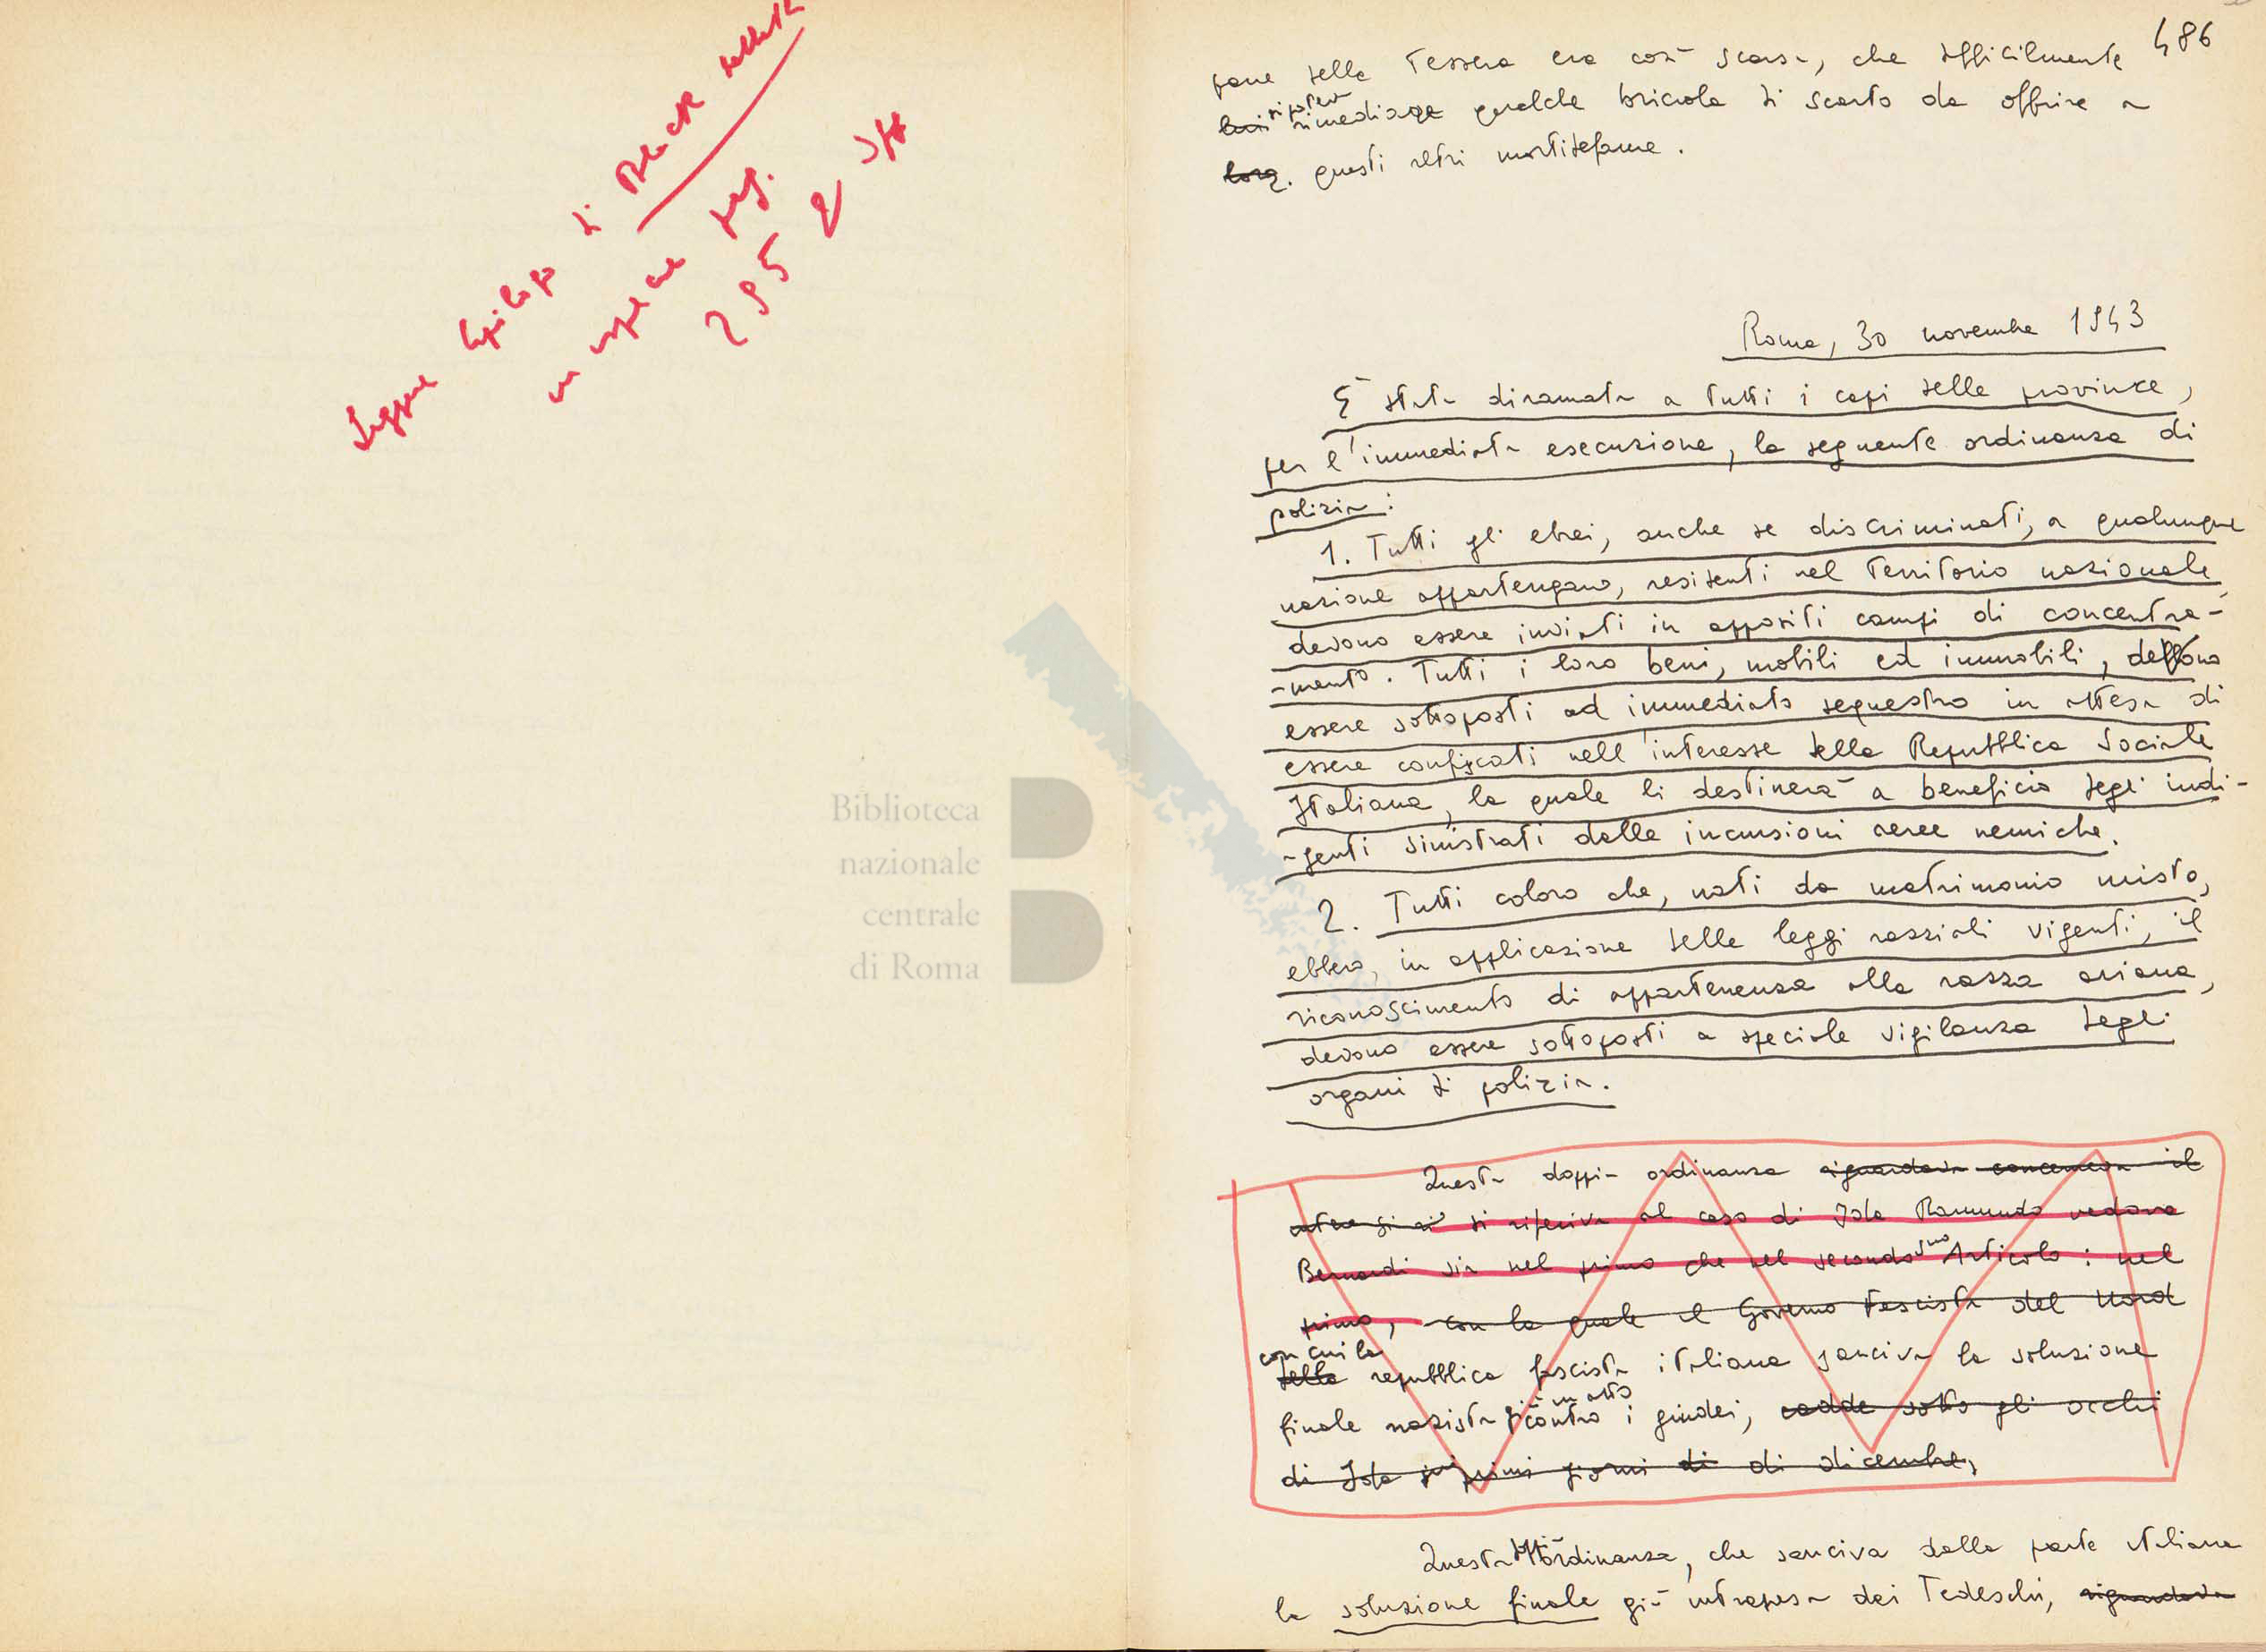 Leggere Epilogo di
in inglese pag.
295 e sgg
486
pane della tessera era così scarso, che difficilmente
lui si poteva rimediare qualche briciola di scarto da offrire a
loro. questi altri mortidefame.
Roma, 30 novembre 1943
È stata diramata a tutti i capi delle province,
per l'immediata esecuzione, la seguente ordinanza di
polizia:
1. Tutti gli ebrei, anche se discriminati, a qualunque
nazione appartengano, residenti nel territorio nazionale,
devono essere inviati in appositi campi di concentra-
-mento. Tutti i loro beni, mobili ed immobili, debbono
essere sottoposti ad immediato sequestro in attesa di
essere confiscati nell'interesse della Repubblica Sociale
Italiana, la quale li destinerà a beneficio degli indi-
-genti sinistrati dalle incursioni aeree nemiche.
2. Tutti coloro che, nati da matrimonio misto,
ebbero, in applicazione delle leggi razziali vigenti, il
riconoscimento di appartenenza alla razza ariana,
devono essere sottoposti a speciale vigilanza degli
organi di polizia.
Questa doppia ordinanza riguardava concerneva il
si riferiva al caso di Ida Ramundo vedova
Bernardi sia nel primo che nel secondo suo Articolo: nel
primo, con la quale il Governo Fascista del Nord
con cui la
della repubblica fascista italiana sanciva la soluzione
finale nazista già in atto contro i giudei, cadde sotto gli occhi
di Ida primi giorni di di dicembre,
Questa ordinanza, che sanciva dalla parte italiana
la soluzione finale già intrapresa dai Tedeschi, riguardava
Biblioteca
nazionale
centrale
di Roma